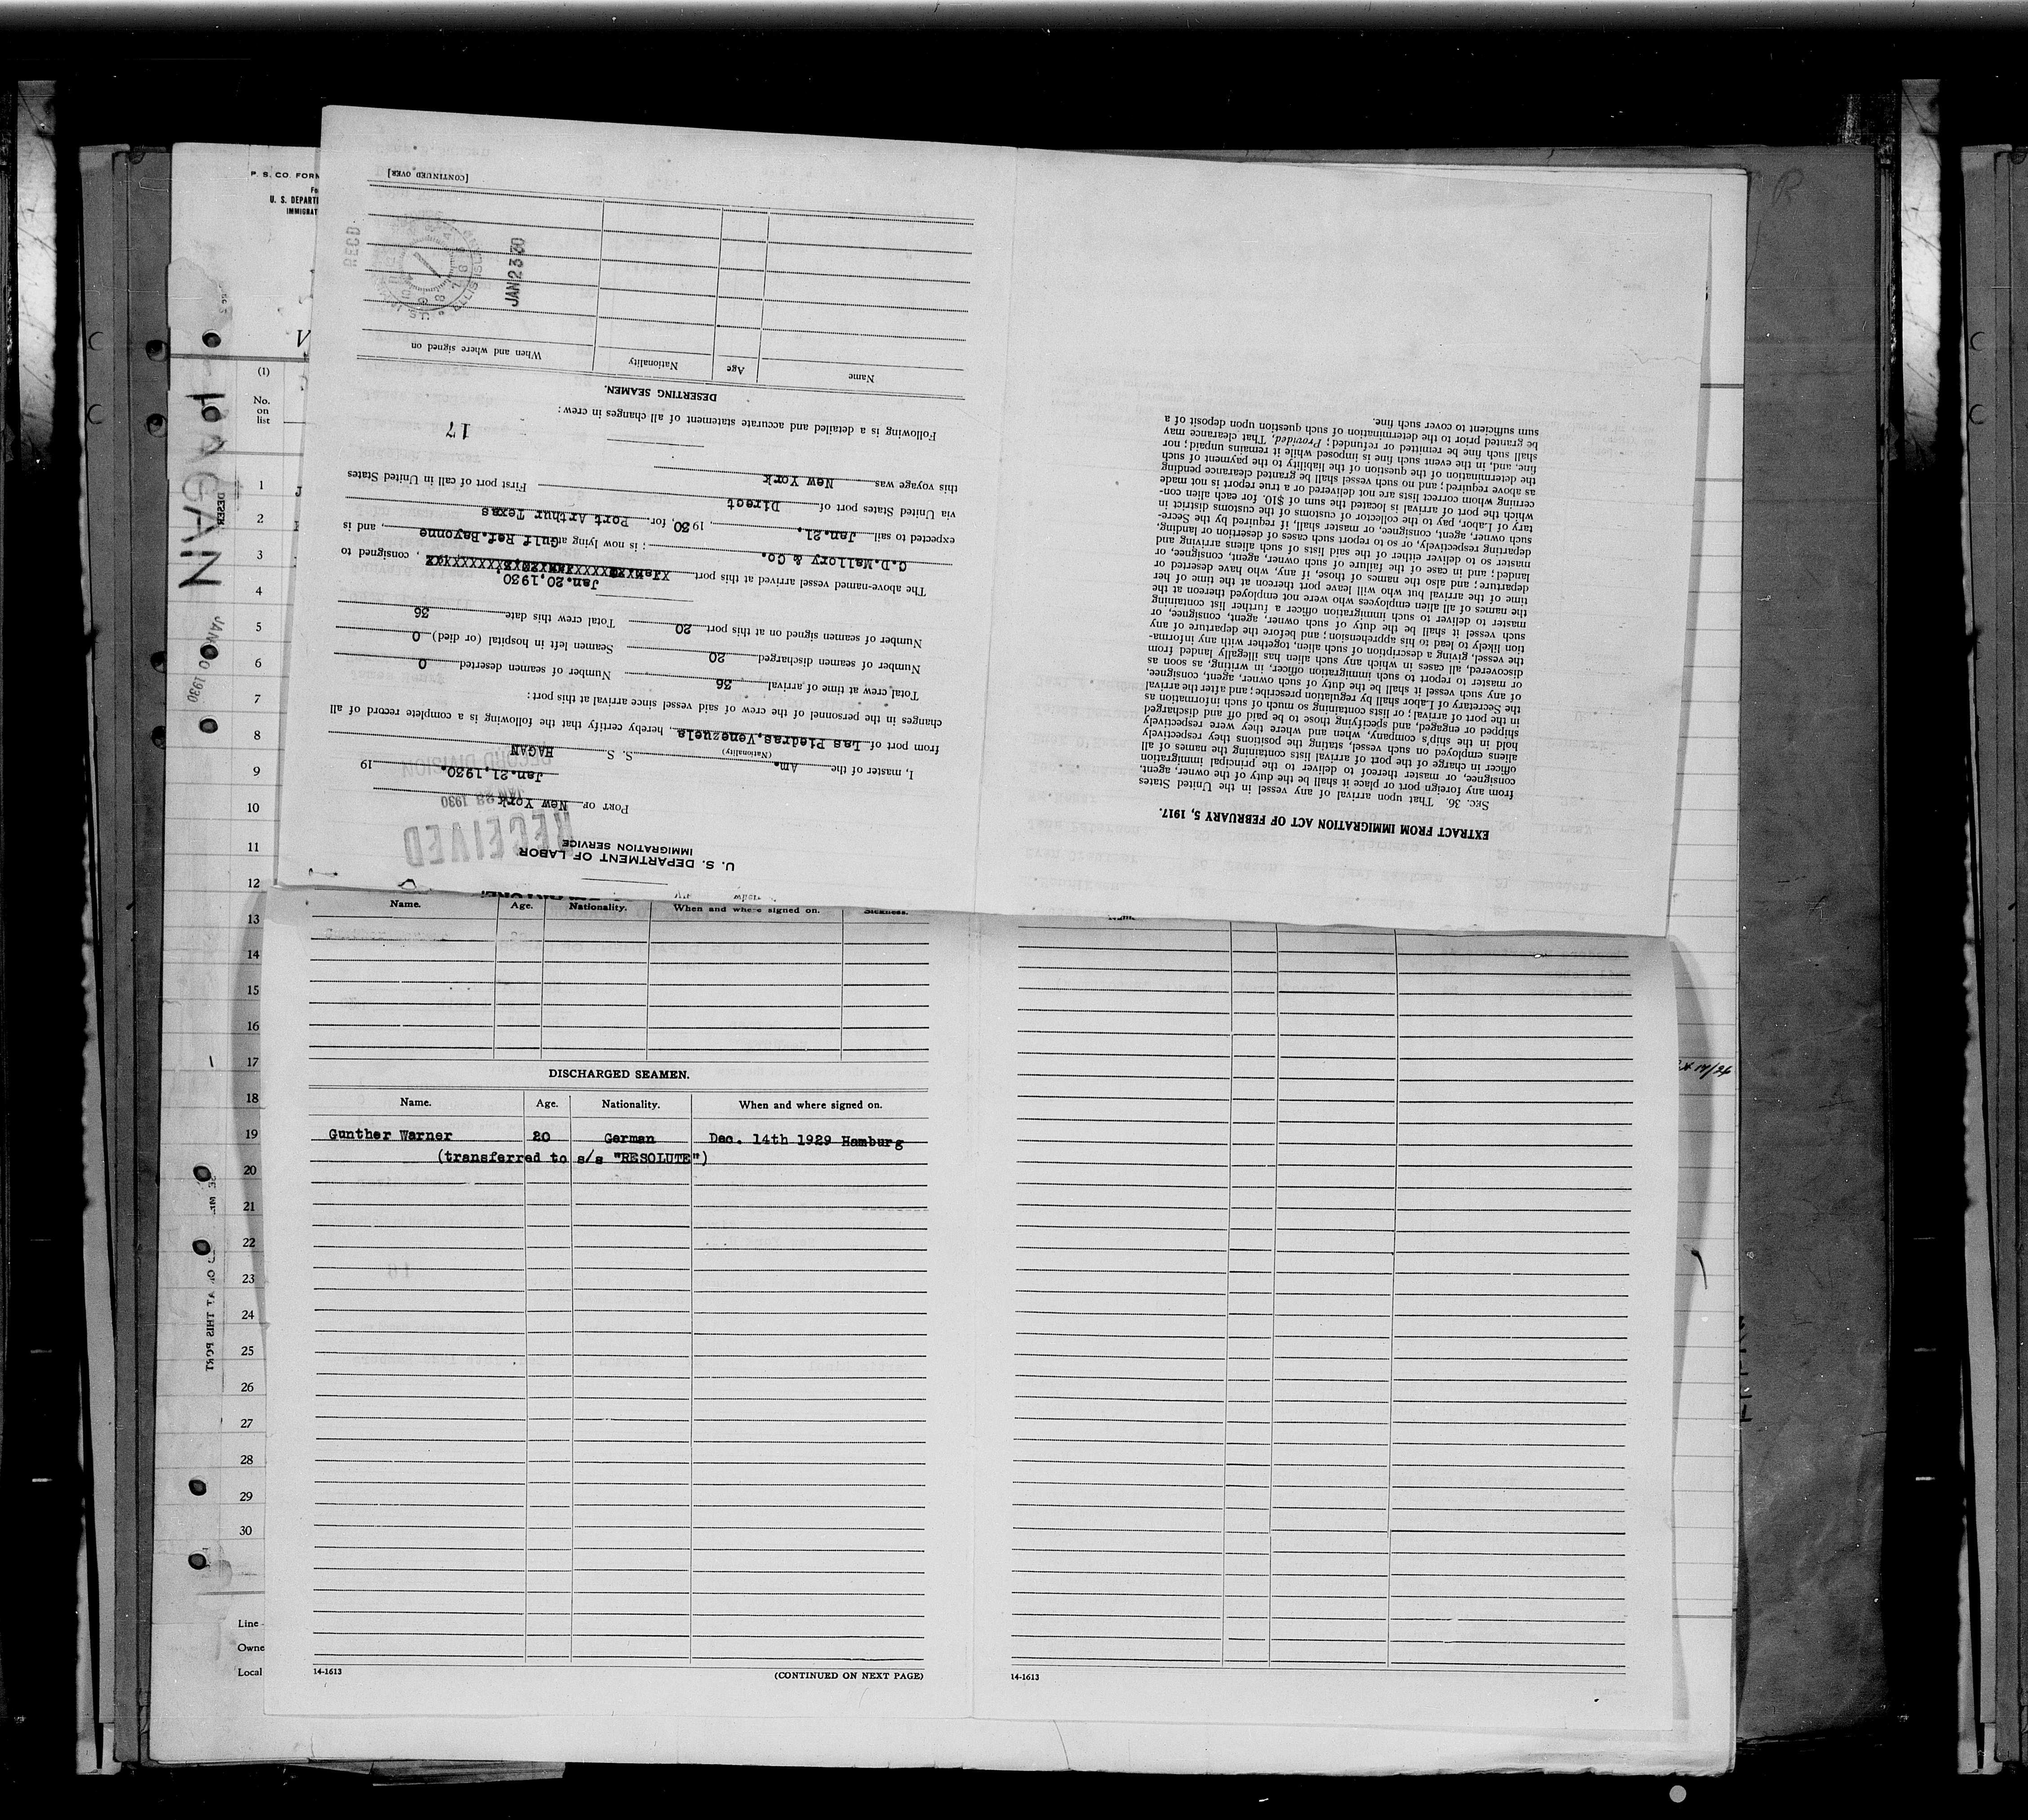 P. S. CO. FORM
U. S. DEPARTM
IMMIGRAT
(1)
No.
on
list
1
2
3
4
5
6
7
8
9
10
11
12
13
14
15
16
17
18
19
20
21
22
23
24
25
26
27
28
29
30
Line
Owne
Local
HAGAN
JAN 20 1930
U. S. DEPARTMENT OF LABOR
IMMIGRATION SERVICE
RECEIVED
JAN 23 1930
RECORD DIVISION
PORT OF New York
Jan. 21, 1930. 19
I, master of the Am. S. S. HAGAN
(Nationality)
from port of Las Piedras, Venezuela, hereby certify that the following is a complete record of all
changes in the personnel of the crew of said vessel since arrival at this port:
Total crew at time of arrival, 36 Number of seamen deserted 0
Number of seamen discharged 20 Seamen left in hospital (or died) 0
Number of seamen signed on at this port 20 Total crew this date 36
Jan. 20, 1930
The above-named vessel arrived at this port , consigned to
C.D. Mallory & Co. ; is now lying at Gulf Ref. Bayonne, and is
expected to sail Jan. 21., 1930, for Port Arthur Texas
via United States port of Direct First port of call in United States
this voyage was New York
Following is a detailed and accurate statement of all changes in crew:
17
DESERTING SEAMEN.
Name Age Nationality When and where signed on
REC'D
JAN 23 30
[CONTINUED OVER]
EXTRACT FROM IMMIGRATION ACT OF FEBRUARY 5, 1917.
SEC. 36. That upon arrival of any vessel in the United States
from any foreign port or place it shall be the duty of the owner, agent,
consignee, or master thereof to deliver to the principal immigration
officer in charge of the port of arrival lists containing the names of all
aliens employed on such vessel, stating the positions they respectively
hold in the ship's company, when and where they were respectively
shipped or engaged, and specifying those to be paid off and discharged
in the port of arrival; or lists containing so much of such information as
the Secretary of Labor shall by regulation prescribe; and after the arrival
of any such vessel it shall be the duty of such owner, agent, consignee,
or master to report to such immigration officer, in writing, as soon as
discovered, all cases in which any such alien has illegally landed from
the vessel, giving a description of such alien, together with any informa-
tion likely to lead to his apprehension; and before the departure of any
such vessel it shall be the duty of such owner, agent, consignee, or
master to deliver to such immigration officer a further list containing
the names of all alien employees who were not employed thereon at the
time of the arrival but who will leave port thereon at the time of her
departure; and also the names of those, if any, who have deserted or
landed; and in case of the failure of such owner, agent, consignee, or
master so to deliver either of the said lists of such aliens arriving and
departing respectively, or so to report such cases of desertion or landing,
such owner, agent, consignee, or master shall, if required by the Secre-
tary of Labor, pay to the collector of customs of the customs district in
which the port of arrival is located the sum of $10. for each alien con-
cerning whom correct lists are not delivered or a true report is not made
as above required; and no such vessel shall be granted clearance pending
the determination of the question of the liability to the payment of such
fine, and, in the event such fine is imposed while it remains unpaid; nor
shall such fine be remitted or refunded; Provided, That clearance may
be granted prior to the determination of such question upon deposit of a
sum sufficient to cover such fine.
Name. Age. Nationality. When and where signed on. Sickness.
DISCHARGED SEAMEN.
Name. Age. Nationality. When and where signed on.
Gunther Warner 20 German Dec. 14th 1929 Hamburg
(transferred to s/s "RESOLUTE")
14-1613 (CONTINUED ON NEXT PAGE)
14-1613